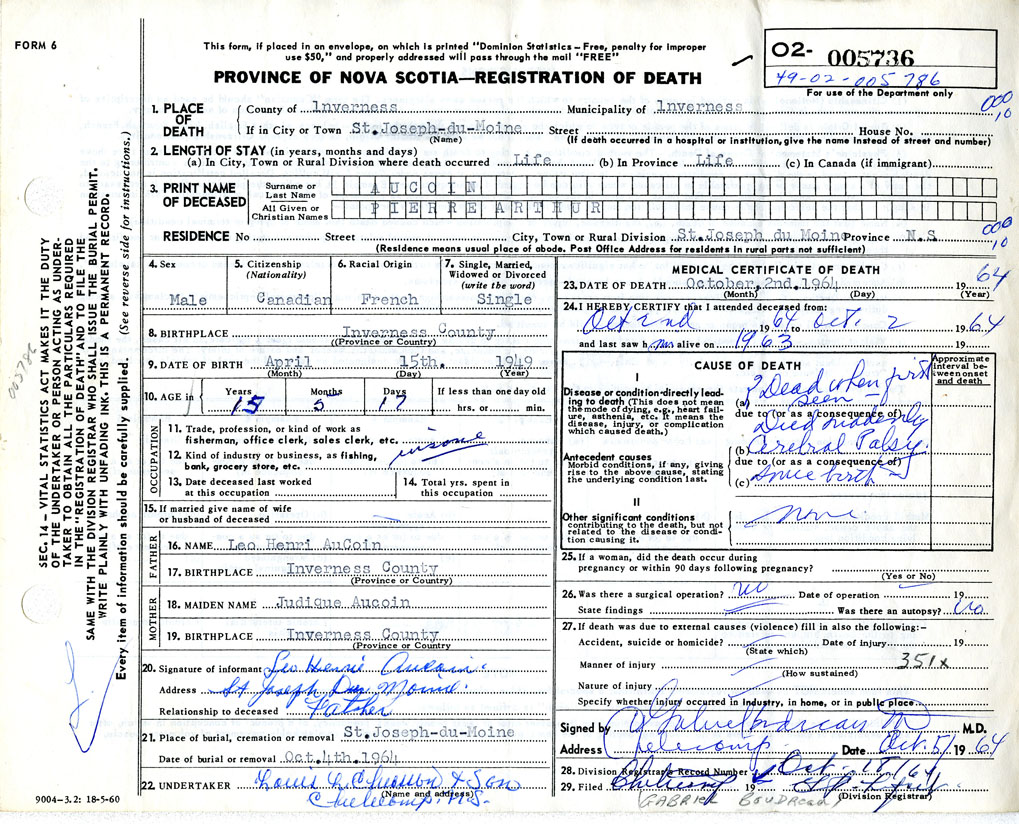 FORM 6
This form, if placed in an envelope, on which is printed "Dominion Statistics – Free, penalty for improper
use $50," and properly addressed will pass through the mail "FREE"
PROVINCE OF NOVA SCOTIA—REGISTRATION OF DEATH
O2- 005736
49-02-005786
For use of the Department only
1. PLACE OF DEATH
County of Inverness Municipality of Inverness
000
10
If in City or Town St.Joseph-du-Moine Street House No.
(Name) (If death occurred in a hospital or institution, give the name instead of street and number)
2. LENGTH OF STAY (in years, months and days)
(a) In City, Town or Rural Division where death occurred Life (b) In Province Life (c) In Canada (if immigrant)
3. PRINT NAME OF DECEASED
Surname or Last Name AUCOIN
All Given or Christian Names PIERRE ARTHUR
000
10
RESIDENCE No Street City, Town or Rural Division St.Joseph du Moine Province N.S
(Residence means usual place of abode. Post Office Address for residents in rural parts not sufficient)
4. Sex
Male
5. Citizenship
(Nationality)
Canadian
6. Racial Origin
French
7. Single, Married,
Widowed or Divorced
(write the word)
Single
8. BIRTHPLACE Inverness County
(Province or County)
9. DATE OF BIRTH April 15th. 1949
(Month) (Day) (Year)
10. AGE in
Years Months Days If less than one day old
15 5 17 hrs. or min.
OCCUPATION
11. Trade, profession, or kind of work as
fisherman, office clerk, sales clerk, etc.
12. Kind of industry or business, as fishing,
bank, grocery store, etc.
13. Date deceased last worked
at this occupation
14. Total yrs. spent in
this occupation
15. If married give name of wife
or husband of deceased
FATHER
16. NAME Leo Henri AuCoin
17. BIRTHPLACE Inverness County
(Province or Country)
MOTHER
18. MAIDEN NAME Judique Aucoin
19. BIRTHPLACE Inverness County
(Province or Country)
20. Signature of informant Leo Henri Aucoin
Address St Joseph Du Moine
Relationship to deceased Father
21. Place of burial, cremation or removal St.Joseph-du-Moine
Date of burial or removal Oct.4th.1964
22. UNDERTAKER Louis L. & Son
(Name and address)
N.S.
9004-3.2: 18-5-60
MEDICAL CERTIFICATE OF DEATH
23. DATE OF DEATH October, 2nd.1964 19 64
(Month) (Day) (Year)
24. I HEREBY CERTIFY that I attended deceased from:
Oct 2nd 1964 to Oct. 2 1964
and last saw him alive on 1963 19
CAUSE OF DEATH
Approximate
interval be-
tween onset
and death
I
Disease or condition directly lead-
ing to death (This does not mean
the mode of dying, e.g., heart fail-
ure, asthenia, etc. It means the
disease, injury, or complication
which caused death.)
(a) Dead when first
seen
due to (or as a consequence of)
Died suddenly
Antecedent causes
Morbid conditions, if any, giving
rise to the above cause, stating
the underlying condition last.
(b) Cerebral Palsy
due to (or as a consequence of)
(c) Since birth
II
Other significant conditions
contributing to the death, but not
related to the disease or condi-
tion causing it.
None
25. If a woman, did the death occur during
pregnancy or within 90 days following pregnancy?
(Yes or No)
26. Was there a surgical operation? No Date of operation 19
State findings Was there an autopsy? No
27. If death was due to external causes (violence) fill in also the following:–
Accident, suicide or homicide? Date of injury 19
(State which)
Manner of injury 351x
(How sustained)
Nature of injury
Specify whether injury occurred in industry, in home, or in public place
Signed by M.D.
Address Date Oct. 5/ 1964
28. Division Registrar's Record Number
29. Filed Oct. 19
(Division Registrar)
GABRIEL BOUDREAU
SEC. 14 – VITAL STATISTICS ACT MAKES IT THE DUTY
OF THE UNDERTAKER OR PERSON ACTING AS UNDER-
TAKER TO OBTAIN ALL THE PARTICULARS REQUIRED
IN THE "REGISTRATION OF DEATH" AND TO FILE THE
SAME WITH THE DIVISION REGISTRAR WHO SHALL ISSUE THE BURIAL PERMIT.
WRITE PLAINLY WITH UNFADING INK. THIS IS A PERMANENT RECORD.
Every item of information should be carefully supplied. (See reverse side for instructions.)
005786